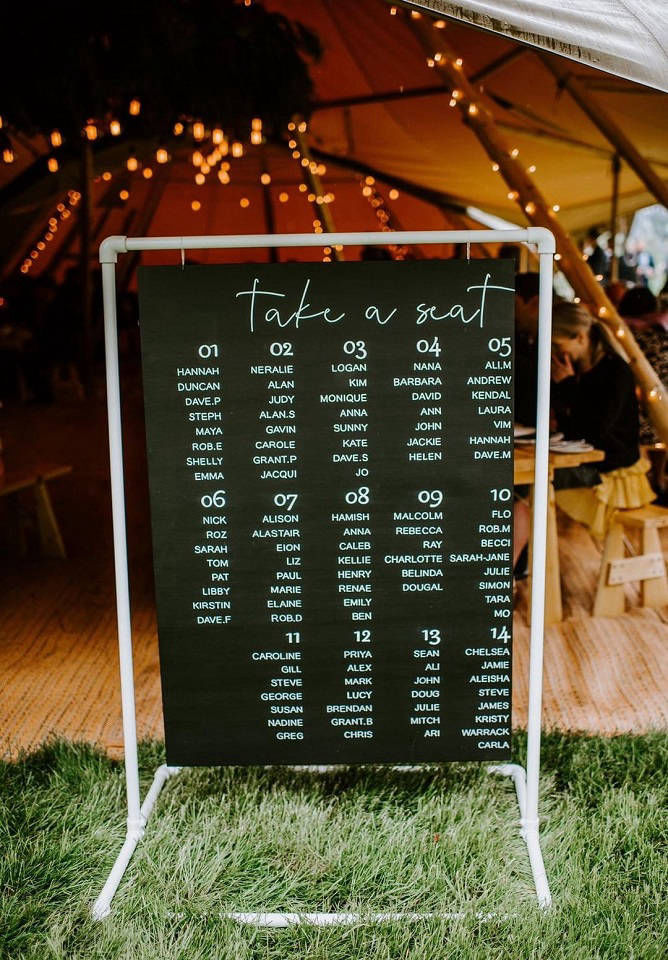 take a seat
01
HANNAH
DUNCAN
DAVE.P
STEPH
MAYA
ROB.E
SHELLY
EMMA
02
NERALIE
ALAN
JUDY
ALAN.S
GAVIN
CAROLE
GRANT.P
JACQUI
03
LOGAN
KIM
MONIQUE
ANNA
SUNNY
KATE
DAVE.S
JO
04
NANA
BARBARA
DAVID
ANN
JOHN
JACKIE
HELEN
05
ALI.M
ANDREW
KENDAL
LAURA
VIM
HANNAH
DAVE.M
06
NICK
ROZ
SARAH
TOM
PAT
LIBBY
KIRSTIN
DAVE.F
07
ALISON
ALASTAIR
EION
LIZ
PAUL
MARIE
ELAINE
ROB.D
08
HAMISH
ANNA
CALEB
KELLIE
HENRY
RENAE
EMILY
BEN
09
MALCOLM
REBECCA
RAY
CHARLOTTE
BELINDA
DOUGAL
10
FLO
ROB.M
BECCI
SARAH-JANE
JULIE
SIMON
TARA
MO
11
CAROLINE
GILL
STEVE
GEORGE
SUSAN
NADINE
GREG
12
PRIYA
ALEX
MARK
LUCY
BRENDAN
GRANT.B
CHRIS
13
SEAN
ALI
JOHN
DOUG
JULIE
MITCH
ARI
14
CHELSEA
JAMIE
ALEISHA
STEVE
JAMES
KRISTY
WARRACK
CARLA